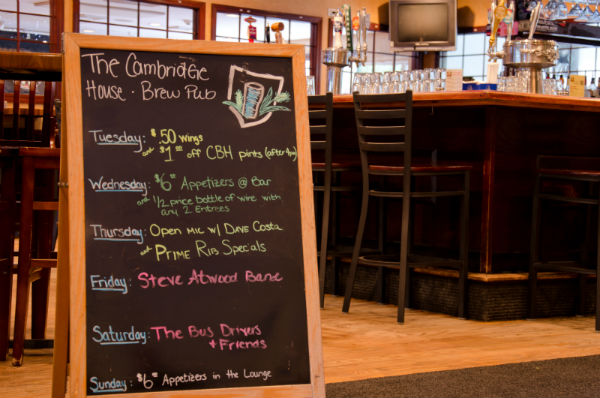 The Cambridge
House · Brew Pub
Tuesday: $.50 wings
and $1.00 off CBH pints (after 9pm)
Wednesday: $6.00 Appetizers @ Bar
and 1/2 price bottle of wine with
any 2 Entrees
Thursday: Open mic w/ Dave Costa
and Prime Rib Specials
Friday: Steve Atwood Band
Saturday: The Bus Drivers
+ Friends
Sunday: $6.00 Appetizers in the Lounge